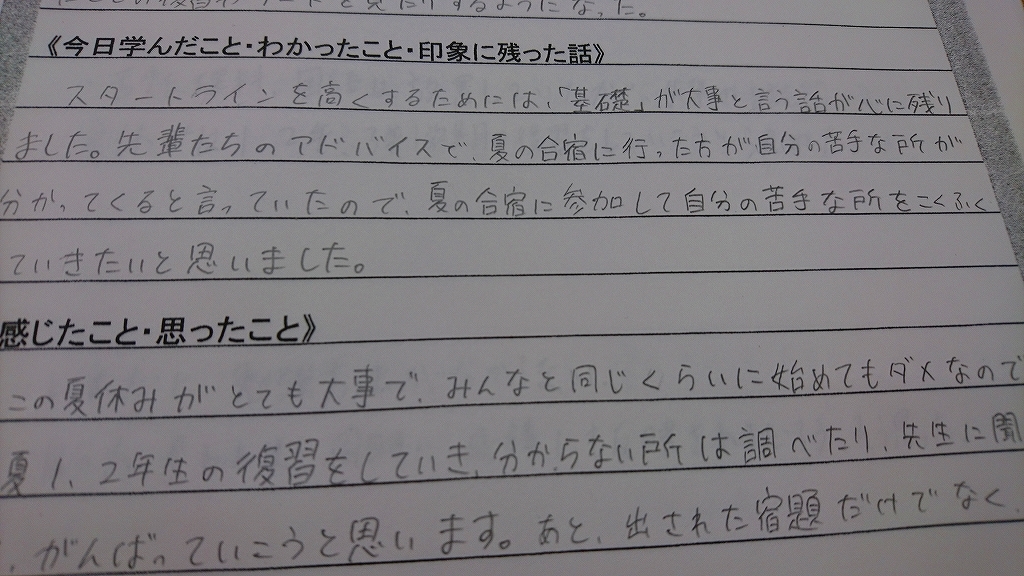 にこの復習やノートを見たりするようになった。
《今日学んだこと・わかったこと・印象に残った話》
スタートラインを高くするためには、「基礎」が大事と言う話が心に残り
ました。先輩たちのアドバイスで、夏の合宿に行った方が自分の苦手な所が
分かってくると言っていたので、夏の合宿に参加して自分の苦手な所をこくふく
ていきたいと思いました。
感じたこと・思ったこと》
この夏休みがとても大事で、みんなと同じくらいに始めてもダメなので
夏1、2年生の復習をしていき、分からない所は調べたり、先生に聞
、がんばっていこうと思います。あと、出された宿題だけでなく、